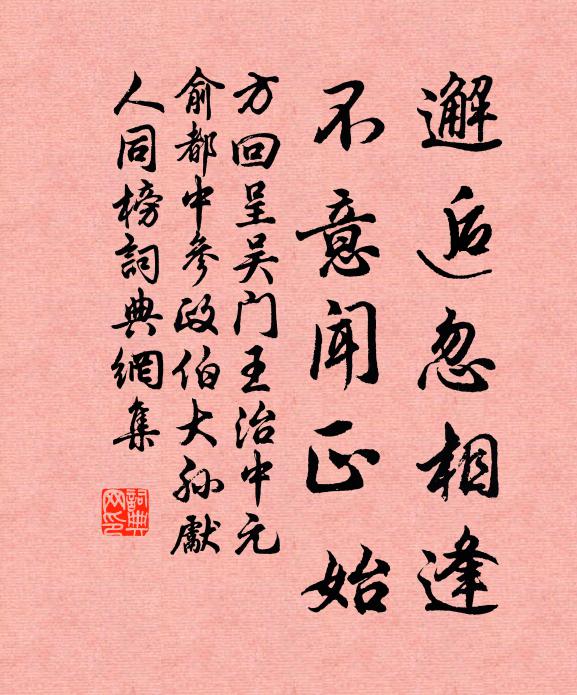 邂逅忽相逢
不意闻正始
方回呈吴门王治中元
俞都中参政伯大孙献
人同榜詞典網集
詞典网印